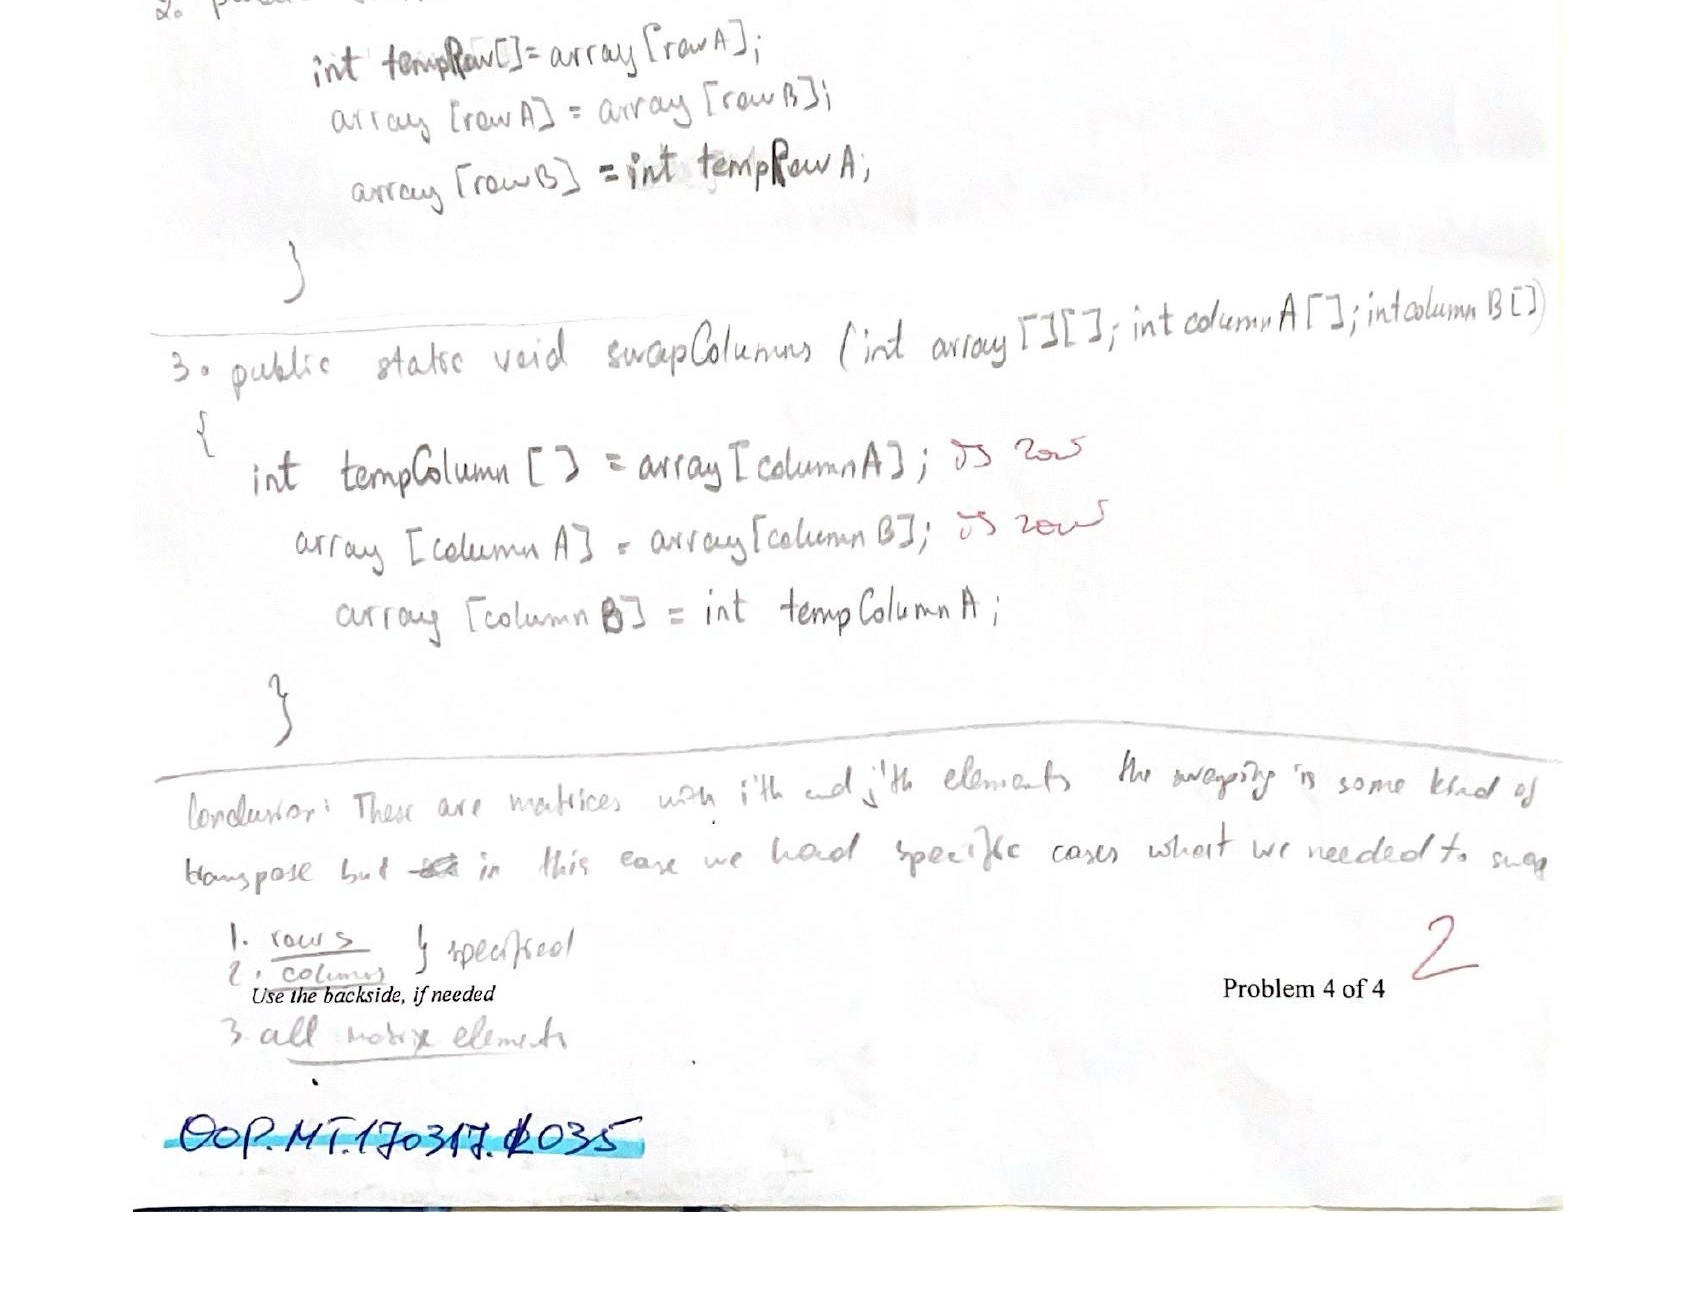 2.
int tempRow[]= array [rowA];
array [rowA] = array [rowB];
array [rowB] = int tempRow A;
}
3. public static void swapColumns (int array [][]; int column A[]; int column B[])
{
int tempColumn [] = array [columnA]; is row
array [column A] = array [column B]; is row
array [column B] = int temp Column A;
}
Conclusion: These are matrices with i'th and j'th elements the swaping is some kind of
transpose but in this case we had specific cases what we needed to swap
1. rows } specified
2. columns
Use the backside, if needed
Problem 4 of 4
2
3. all matrix elements
OOP.MT.170317.035